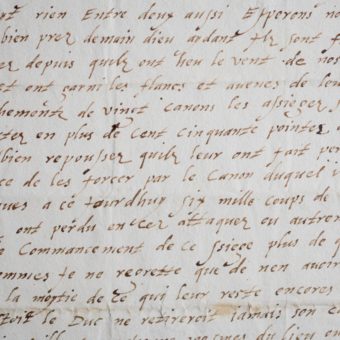 rien Entre deux aussi Esperons no
bien prez demain dieu aidant Ilz sont f
depuis quilz ont heu le vent de nos
et ont garni les flancs et avenes de leu
de vingt canons les assieges
en plus de Cent cinquante pointes
bien repoussez quilz leur ont fait per
ce de les forcer par le Canon duquel i
ques a ce Iourdhuy six mille coups de
ont perdu en ces attaques ou autrem
n Commancement de ce siege plus de q
ommes Ie ne regrette que de nen avoir
la moytie de ce qui leur reste encores
le Duc ne retireroit jamais son ca
du lieu ou